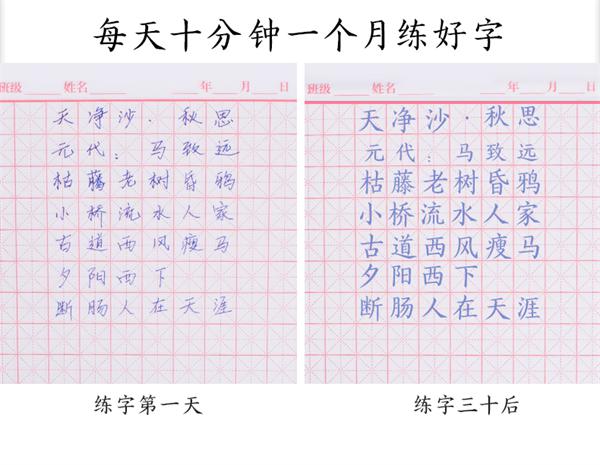 每天十分钟一个月练好字
班级 姓名 年 月 日
天净沙·秋思
元代：马致远
枯藤老树昏鸦
小桥流水人家
古道西风瘦马
夕阳西下
断肠人在天涯
练字第一天
班级 姓名 年 月 日
天净沙·秋思
元代：马致远
枯藤老树昏鸦
小桥流水人家
古道西风瘦马
夕阳西下
断肠人在天涯
练字三十后